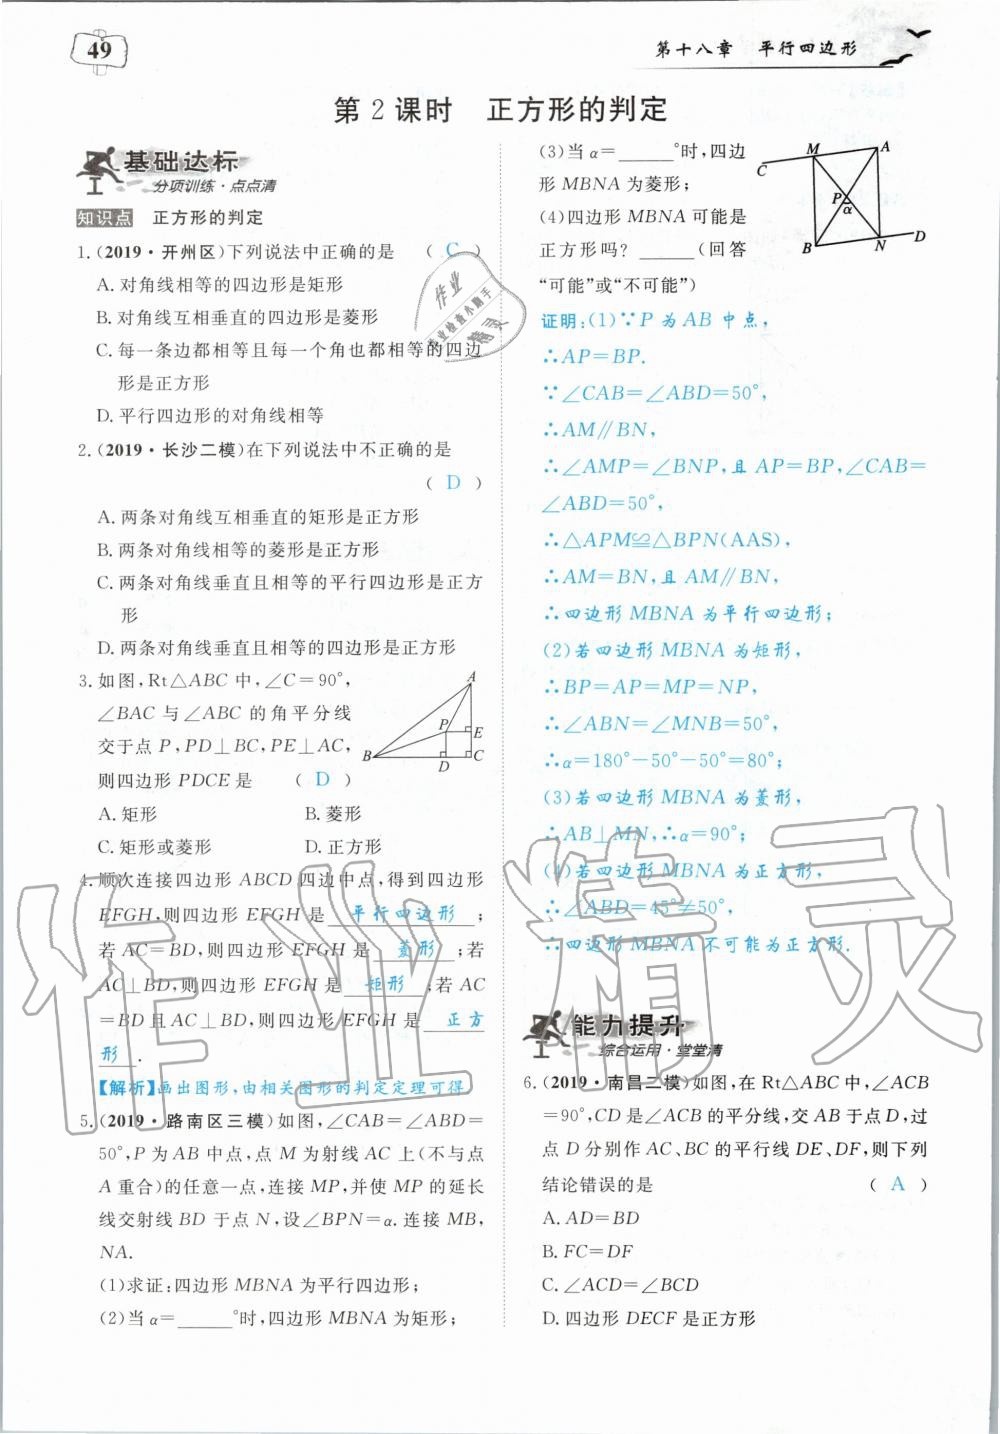 49
第十八章 平行四边形
第2课时 正方形的判定
基础达标
分项训练·点点清
知识点 正方形的判定
1.(2019·开州区)下列说法中正确的是 ( C )
A.对角线相等的四边形是矩形
B.对角线互相垂直的四边形是菱形
C.每一条边都相等且每一个角也都相等的四边
形是正方形
D.平行四边形的对角线相等
2.(2019·长沙二模)在下列说法中不正确的是
( D )
A.两条对角线互相垂直的矩形是正方形
B.两条对角线相等的菱形是正方形
C.两条对角线垂直且相等的平行四边形是正方
形
D.两条对角线垂直且相等的四边形是正方形
3.如图,Rt△ABC中,∠C=90°,
∠BAC与∠ABC的角平分线
交于点P,PD⊥BC,PE⊥AC,
则四边形PDCE是 ( D )
A.矩形 B.菱形
C.矩形或菱形 D.正方形
A
P
E
B
D
C
4.顺次连接四边形ABCD四边中点,得到四边形
EFGH,则四边形EFGH是 平行四边形 ;
若AC=BD,则四边形EFGH是 菱形 ;若
AC⊥BD,则四边形EFGH是 矩形 ;若AC
=BD且AC⊥BD,则四边形EFGH是 正方
形 .
【解析】画出图形,由相关图形的判定定理可得
5.(2019·路南区三模)如图,∠CAB=∠ABD=
50°,P为AB中点,点M为射线AC上(不与点
A重合)的任意一点,连接MP,并使MP的延长
线交射线BD于点N,设∠BPN=α.连接MB,
NA.
(1)求证:四边形MBNA为平行四边形;
(2)当α=______°时,四边形MBNA为矩形;
(3)当α=______°时,四边
形MBNA为菱形;
(4)四边形MBNA可能是
正方形吗? ______(回答
“可能”或“不可能”)
M
A
C
P
α
B
N
D
证明:(1)∵P为AB中点,
∴AP=BP.
∵∠CAB=∠ABD=50°,
∴AM∥BN,
∴∠AMP=∠BNP,且AP=BP,∠CAB=
∠ABD=50°,
∴△APM≌△BPN(AAS),
∴AM=BN,且AM∥BN,
∴四边形MBNA为平行四边形;
(2)若四边形MBNA为矩形,
∴BP=AP=MP=NP,
∴∠ABN=∠MNB=50°,
∴α=180°-50°-50°=80°;
(3)若四边形MBNA为菱形,
∴AB⊥MN,∴α=90°;
(4)若四边形MBNA为正方形,
∴∠ABD=45°≠50°,
∴四边形MBNA不可能为正方形.
能力提升
综合运用·堂堂清
6.(2019·南昌二模)如图,在Rt△ABC中,∠ACB
=90°,CD是∠ACB的平分线,交AB于点D,过
点D分别作AC、BC的平行线DE、DF,则下列
结论错误的是 ( A )
A.AD=BD
B.FC=DF
C.∠ACD=∠BCD
D.四边形DECF是正方形
作业精灵
作业
作业检查小助手
精灵